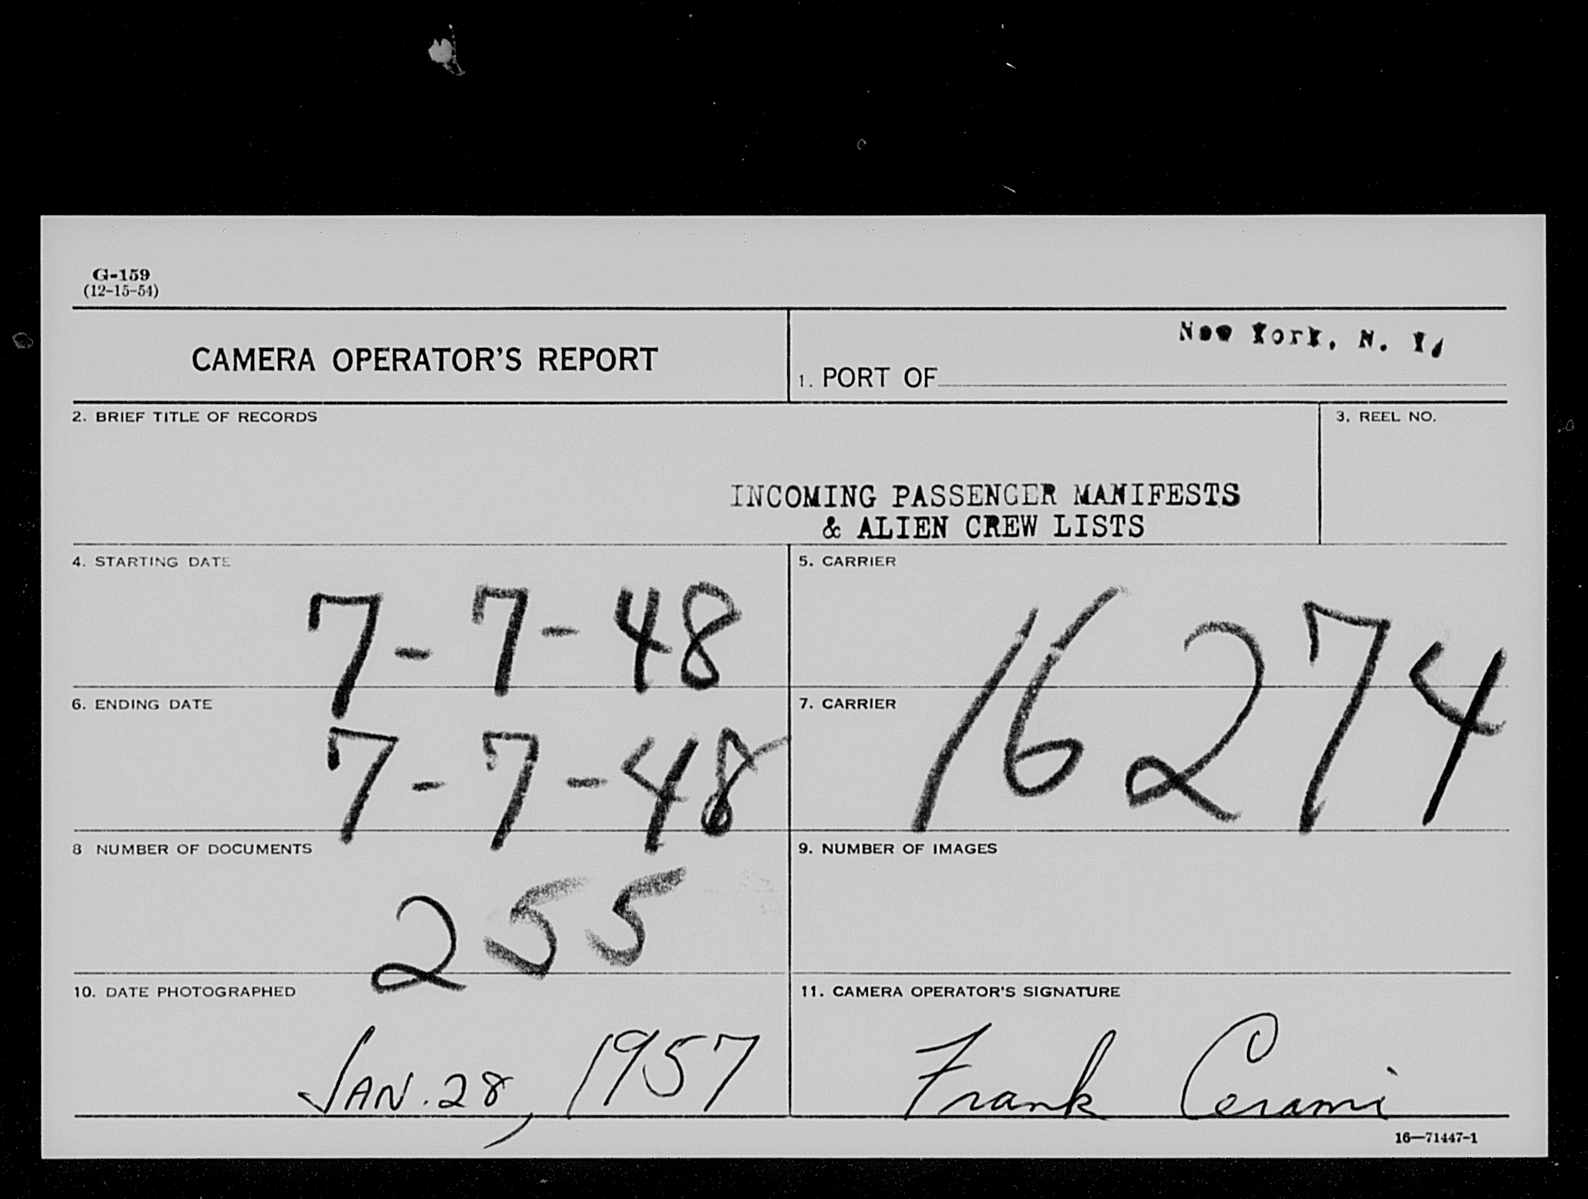 G-159
(12-15-54)
CAMERA OPERATOR'S REPORT
New York, N. Y.
1. PORT OF
2. BRIEF TITLE OF RECORDS
3. REEL NO.
INCOMING PASSENGER MANIFESTS
& ALIEN CREW LISTS
4. STARTING DATE
7-7-48
5. CARRIER
16274
6. ENDING DATE
7-7-48
7. CARRIER
8 NUMBER OF DOCUMENTS
255
9. NUMBER OF IMAGES
10. DATE PHOTOGRAPHED
JAN. 28, 1957
11. CAMERA OPERATOR'S SIGNATURE
Frank Cerami
16—71447-1